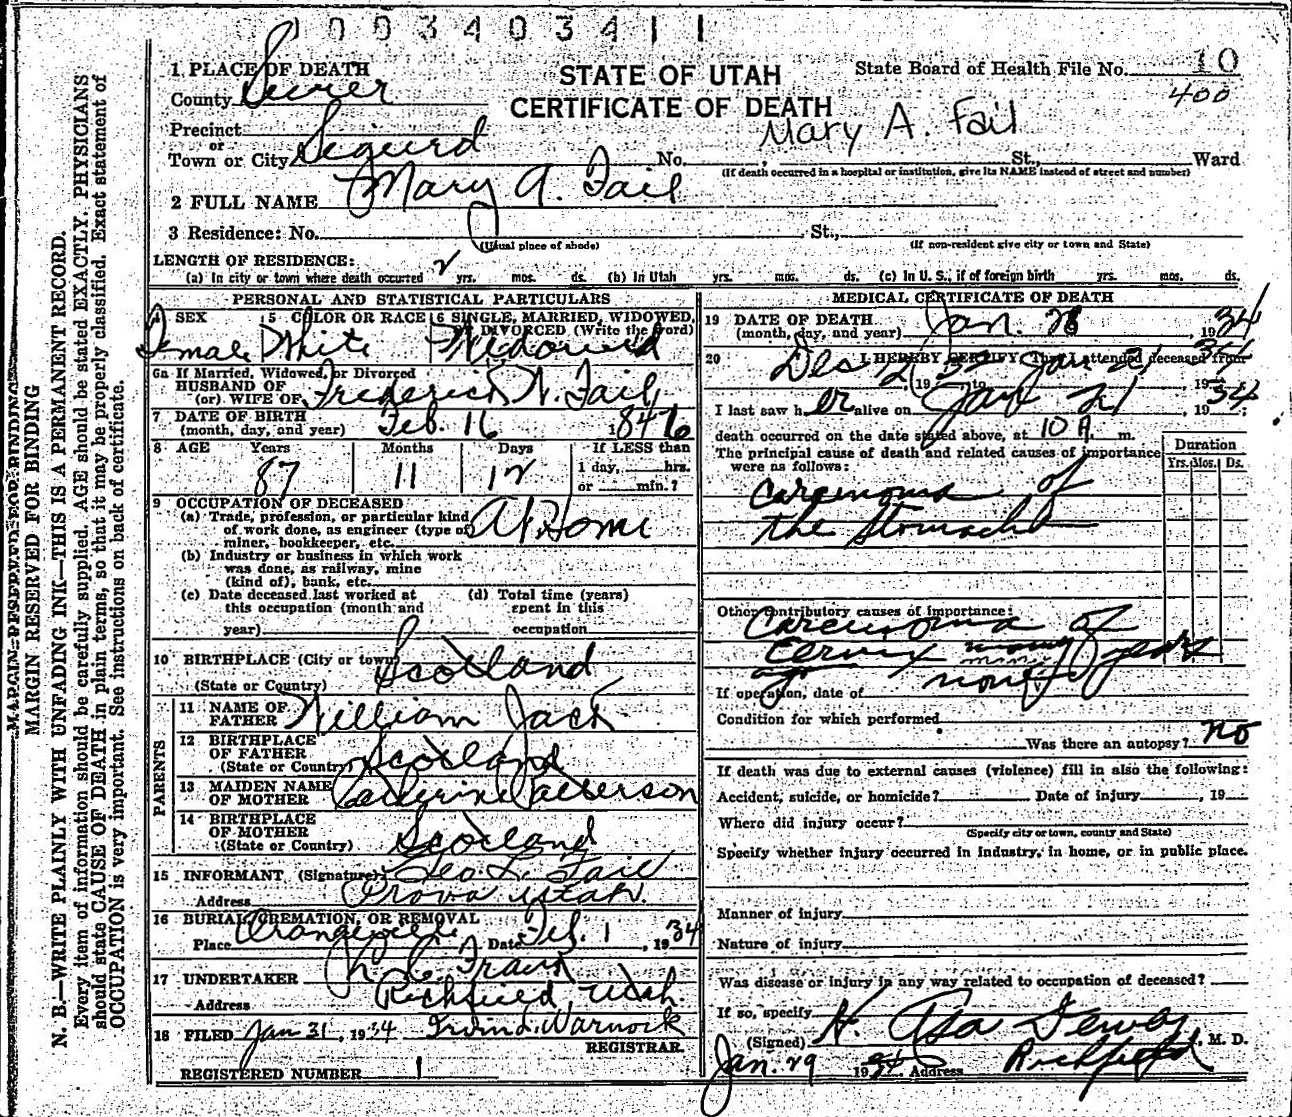 1 0 0 3 4 0 3 4 1 1
1 PLACE OF DEATH
County Sevier
STATE OF UTAH
CERTIFICATE OF DEATH
State Board of Health File No. 10
400
Mary A. Fail
Precinct
or
Town or City Sigurd No. , St., Ward
(If death occurred in a hospital or institution, give its NAME instead of street and number)
2 FULL NAME Mary A. Fail
3 Residence: No. St.,
(Usual place of abode) (If non-resident give city or town and State)
LENGTH OF RESIDENCE:
(a) In city or town where death occurred 2 yrs. mos. ds. (b) In Utah yrs. mos. ds. (c) In U. S., if of foreign birth yrs. mos. ds.
PERSONAL AND STATISTICAL PARTICULARS
4 SEX 5 COLOR OR RACE 6 SINGLE, MARRIED, WIDOWED,
DIVORCED (Write the word)
Female White Widowed
6a If Married, Widowed, or Divorced
HUSBAND OF
(or) WIFE OF Frederick N. Fail
7 DATE OF BIRTH
(month, day, and year) Feb. 16 1846
8 AGE Years Months Days If LESS than
1 day, hrs.
or min.?
87 11 12
9 OCCUPATION OF DECEASED
(a) Trade, profession, or particular kind
of work done, as engineer (type of
miner, bookkeeper, etc. At Home
(b) Industry or business in which work
was done, as railway, mine
(kind of), bank, etc.
(c) Date deceased last worked at
this occupation (month and
year)
(d) Total time (years)
spent in this
occupation
10 BIRTHPLACE (City or town)
(State or Country) Scotland
PARENTS
11 NAME OF
FATHER William Jack
12 BIRTHPLACE
OF FATHER
(State or Country) Scotland
13 MAIDEN NAME
OF MOTHER Catherine Patterson
14 BIRTHPLACE
OF MOTHER
(State or Country) Scotland
15 INFORMANT (Signature) Geo. L. Fail
Address Provo Utah.
16 BURIAL, CREMATION, OR REMOVAL
Place Orangeville Date Feb. 1, 1934
17 UNDERTAKER
Address Richfield, Utah
18 FILED Jan 31, 1934 Irvin L. Warnock
REGISTRAR.
REGISTERED NUMBER 1
MEDICAL CERTIFICATE OF DEATH
19 DATE OF DEATH
(month, day, and year) Jan. 28 1934
20 I HEREBY CERTIFY, That I attended deceased from
I last saw her alive on Jan 21, 1934;
death occurred on the date stated above, at 10 A. m.
The principal cause of death and related causes of importance
were as follows:
Duration
Yrs. Mos. Ds.
Carcinoma of
the Stomach
Other contributory causes of importance:
Carcinoma of
Cervix many years
ago
If operation, date of none
Condition for which performed
Was there an autopsy? no
If death was due to external causes (violence) fill in also the following:
Accident, suicide, or homicide? Date of injury , 19
Where did injury occur?
(Specify city or town, county and State)
Specify whether injury occurred in industry, in home, or in public place.
Manner of injury
Nature of injury
Was disease or injury in any way related to occupation of deceased?
If so, specify
(Signed) H. Asa Dewey, M. D.
Jan. 29 1934 Address Richfield
MARGIN RESERVED FOR BINDING
MARGIN RESERVED FOR BINDING
N. B.—WRITE PLAINLY WITH UNFADING INK—THIS IS A PERMANENT RECORD.
Every item of information should be carefully supplied. AGE should be stated EXACTLY. PHYSICIANS
should state CAUSE OF DEATH in plain terms, so that it may be properly classified. Exact statement of
OCCUPATION is very important. See instructions on back of certificate.